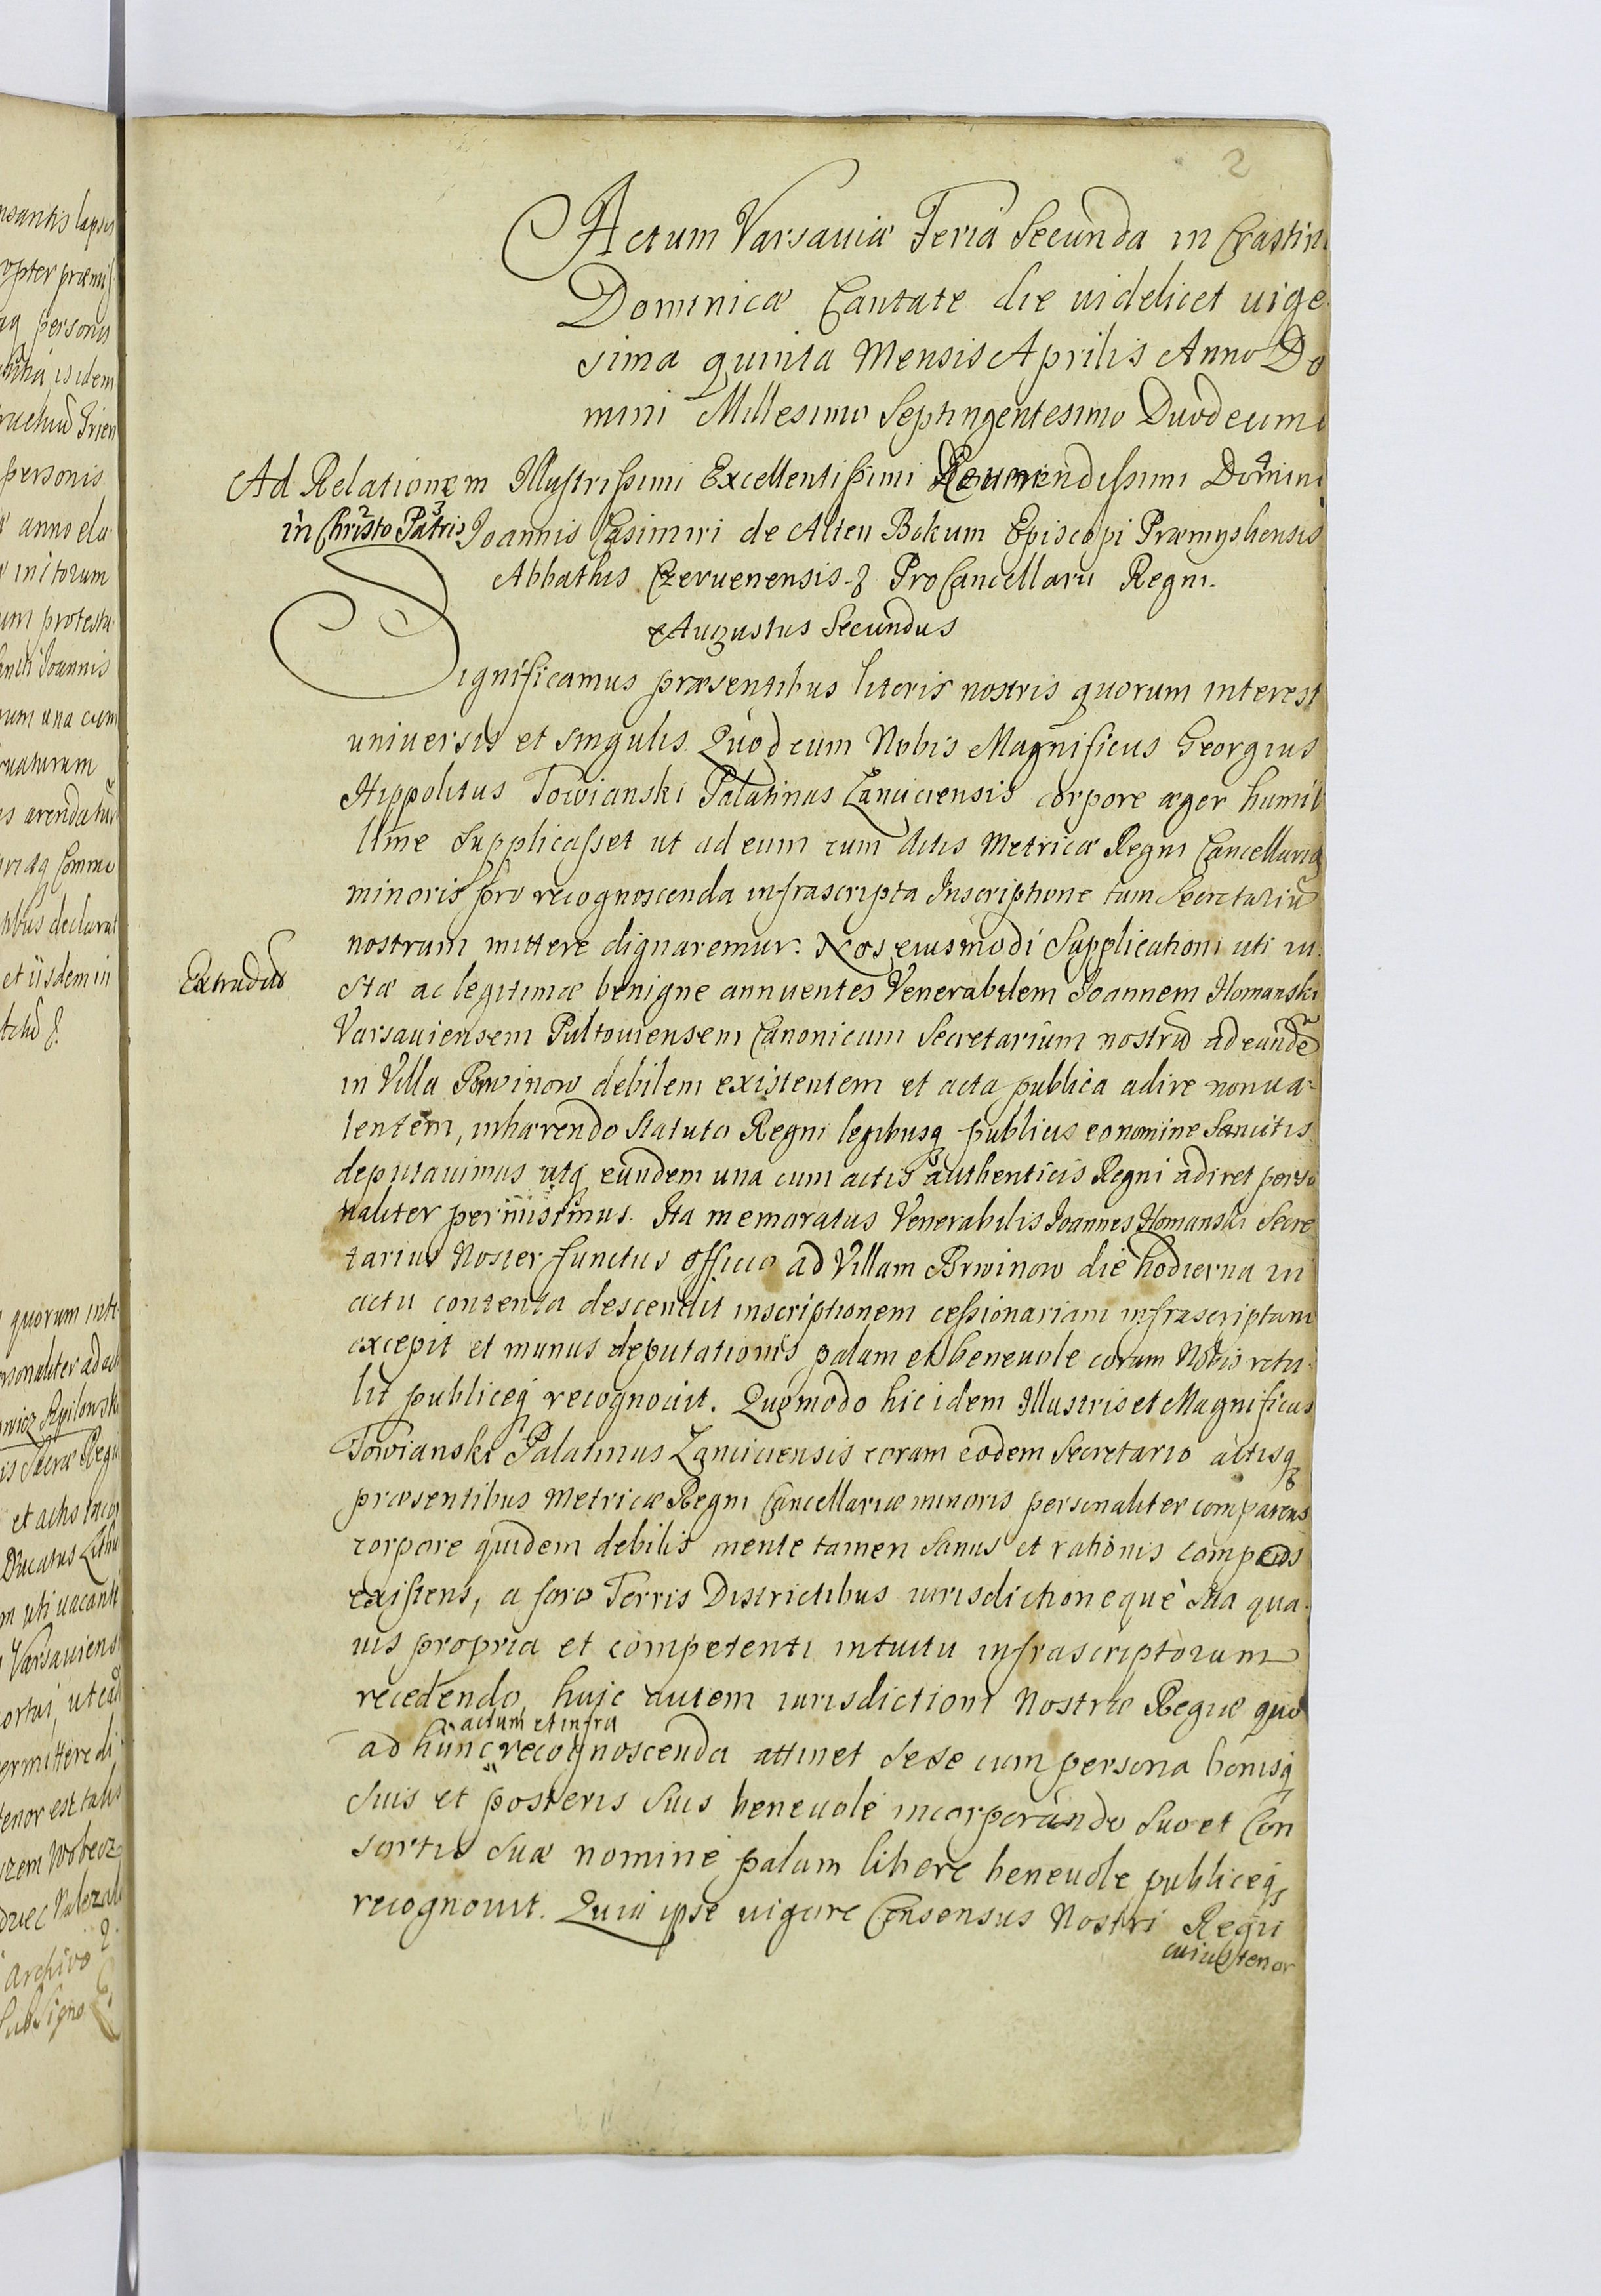 2
Actum Varsauiæ Feria Secunda in Crastin
Dominicæ Cantate die uidelicet uige
sima quinta Mensis Aprilis Anno Do
mini Millesimo Septingentesimo Duodecimo
Ad Relationem Illustrissimi Excellentissimi Reuerendissimi Domini
in Christo Patris Joannis Casimiri de Alten Bokum Episcopi Præmysliensis
Abbathis Czeruenensis & ProCancellarii Regni.
Augustus Secundus
Significamus præsentibus literis nostris quorum interest
uniuersis et singulis. Quod cum Nobis Magnificus Georgius
Hippolitus Towianski Palatinus Lanciciensis corpore æger humil
lime Supplicasset ut ad eum cum Actis Metricæ Regni Cancellariæ
minoris pro recognoscenda infrascripta Inscriptione tum Secretariũ
nostrum mittere dignaremur. Nos eiusmodi Supplicationi uti iu
Extradit̃
stæ ac legitimæ benigne annuentes Venerabilem Joannem Homanski
Varsauiensem Pultouiensem Canonicum Secretarium nostrũ ad eundẽ
in Villa Brwinow debilem existentem et acta publica adire non ua=
lentem, inhærendo Statuto Regni legibusq publicis eo nomine Sancitis
deputauimus utq eundem una cum actis authenticis Regni adiret perso
naliter permisimus. Ita memoratus Venerabilis Joannes Homanski Secre
tarius Noster functus officio ad Villam Brwinow die hodierna in
actu contenta descendit inscriptionem cessionariam infrascriptam
excepit et munus deputationis palam et beneuole coram Nobis retu
lit publiceq recognouit. Quomodo hic idem Illustris et Magnificus
Towianski Palatinus Lanciciensis coram eodem Secretario actisq
præsentibus Metricæ Regni Cancellariæ minoris personaliter comparens
corpore quidem debilis mente tamen Sanus et rationis compos
existens, a foro Terris Districtibus iurisdictioneque Sua qua
uis propria et competenti intuitu infrascriptorum
recedendo huic autem iurisdictioni Nostræ Regiæ quo
actum et infra
ad hunc recognoscenda attinet sese cum persona bonisq
Suis et posteris Suis beneuole incorporando Suo et Con
sortis Suæ nomine palam libere beneuole publiceq
recognouit. Quia ipse uigore Consensus Nostri Regii
cuius tenor